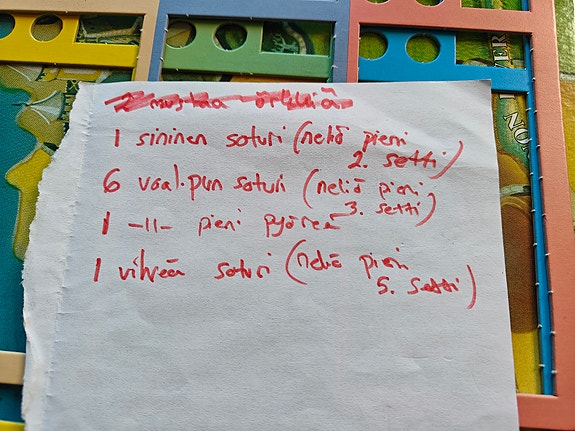 2 mustaa örkkiä
1 sininen soturi (neliö pieni
2. setti)
6 vaal.pun soturi (neliö pieni
3. setti)
1 -11- pieni pyöreä
1 vihreä soturi (neliö pieni
5. setti)
NO